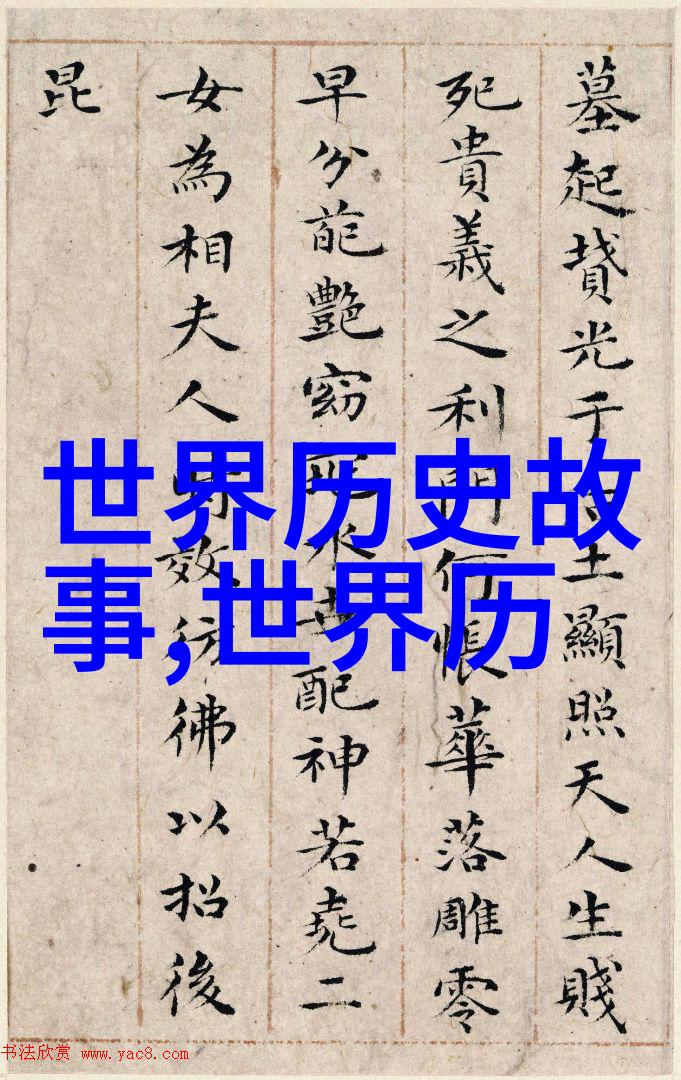 墓起墳光于土顯照天人生賤
死貴義之利門何悵華落雕零
早分葩艷窈永世配神若堯二
女為相夫人效彷佛以招後
昆
世界历史故
事,世界历
书法欣赏 www.yac8.com